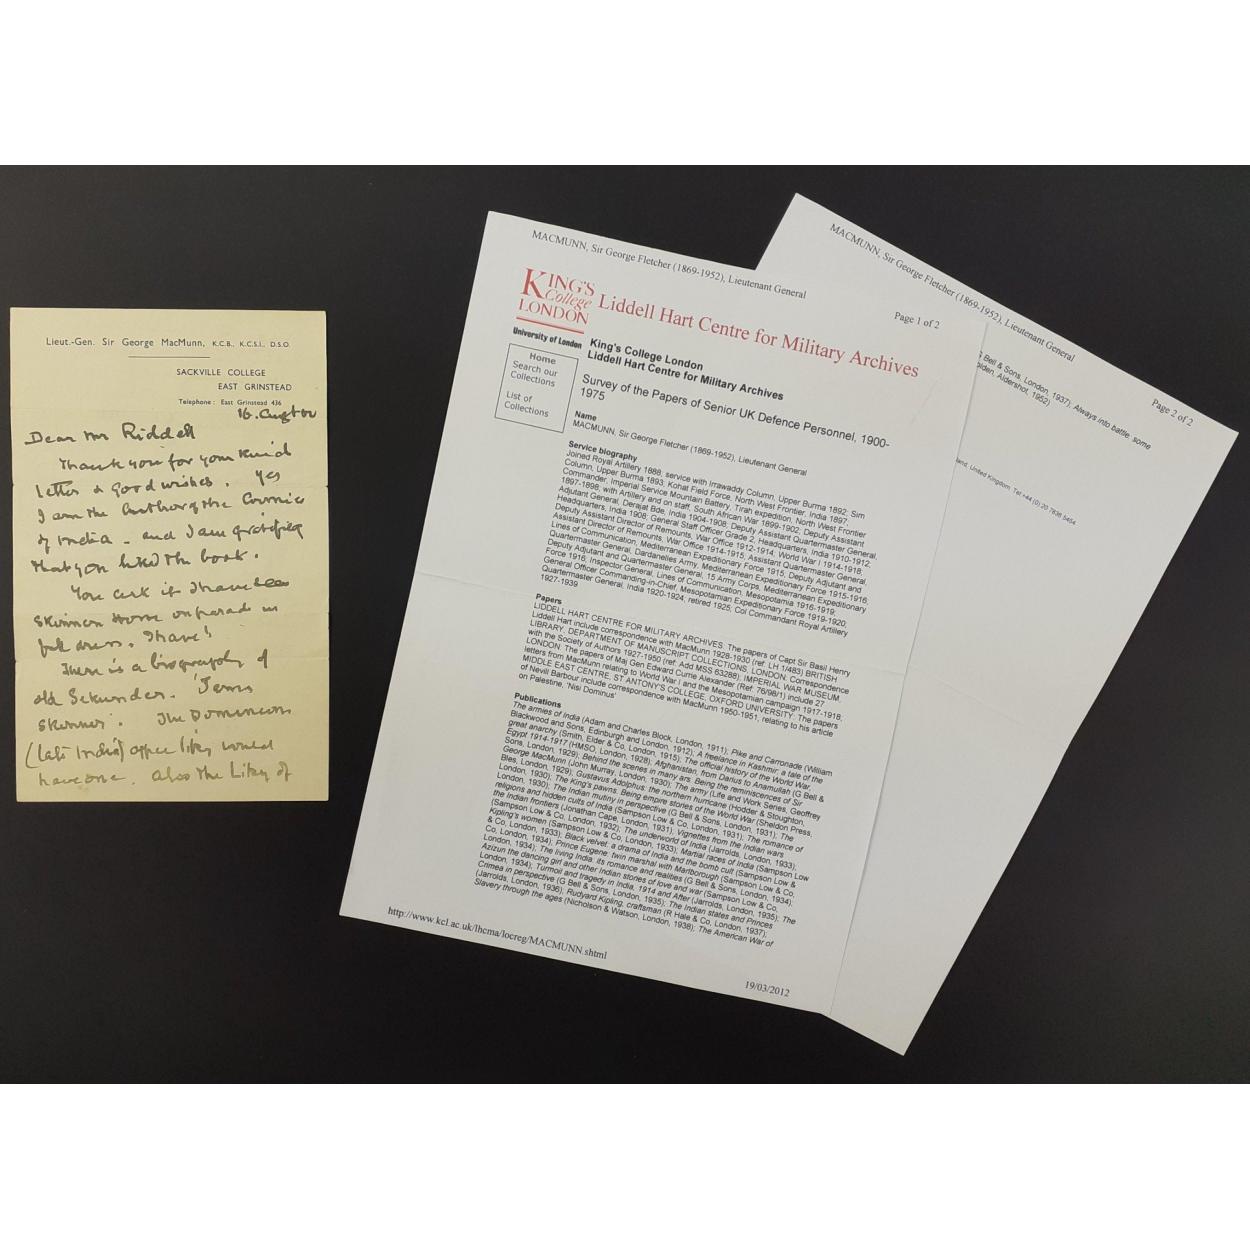 Lieut.-Gen. Sir George MacMunn, K.C.B., K.C.S.I., D.S.O.
SACKVILLE COLLEGE
EAST GRINSTEAD
Telephone : East Grinstead 436
16.
Dear Mr Riddell
Thank you for your kind
letter & good wishes. Yes
I am the author of the Armies
of India - and I am gratified
that you liked the book.
You ask if I have seen
Skinners Horse on parade in
full dress. I have!
There is a biography of
old Sekunder. 'James
Skinner'. The Dominions
(late India) office liby would
have one. Also the Liby of
MACMUNN, Sir George Fletcher (1869-1952), Lieutenant General
Page 1 of 2
KING'S
College
LONDON
University of London
Liddell Hart Centre for Military Archives
Home
Search our
Collections
List of
Collections
King's College London
Liddell Hart Centre for Military Archives
Survey of the Papers of Senior UK Defence Personnel, 1900-
1975
Name
MACMUNN, Sir George Fletcher (1869-1952), Lieutenant General
Service biography
Joined Royal Artillery 1888; service with Irrawaddy Column, Upper Burma 1892; Sim
Column, Upper Burma 1893; Kohat Field Force, North West Frontier, India 1897;
Commander, Imperial Service Mountain Battery, Tirah expedition, North West Frontier
1897-1898, with Artillery and on staff, South African War 1899-1902; Deputy Assistant
Adjutant General, Derajat Bde, India 1904-1908; Deputy Assistant Quartermaster General,
Headquarters, India 1908; General Staff Officer Grade 2, Headquarters, India 1910-1912;
Deputy Assistant Director of Remounts, War Office 1912-1914; World War I 1914-1918;
Assistant Director of Remounts, War Office 1914-1915; Assistant Quartermaster General,
Lines of Communication, Mediterranean Expeditionary Force 1915; Deputy Adjutant and
Quartermaster General, Dardanelles Army, Mediterranean Expeditionary Force 1915-1916;
Deputy Adjutant and Quartermaster General, 15 Army Corps, Mediterranean Expeditionary
Force 1916; Inspector General, Lines of Communication, Mesopotamia 1916-1919;
General Officer Commanding-in-Chief, Mesopotamian Expeditionary Force 1919-1920;
Quartermaster General, India 1920-1924; retired 1925; Col Commandant Royal Artillery
1927-1939
Papers
LIDDELL HART CENTRE FOR MILITARY ARCHIVES. The papers of Capt Sir Basil Henry
Liddell Hart include correspondence with MacMunn 1928-1930 (ref. LH 1/483) BRITISH
LIBRARY. DEPARTMENT OF MANUSCRIPT COLLECTIONS, LONDON. Correspondence
with the Society of Authors 1927-1950 (ref: Add MSS 63288); IMPERIAL WAR MUSEUM,
LONDON. The papers of Maj Gen Edward Currie Alexander (Ref: 76/98/1) include 27
letters from MacMunn relating to World War I and the Mesopotamian campaign 1917-1918;
MIDDLE EAST CENTRE, ST ANTONY'S COLLEGE, OXFORD UNIVERSITY: The papers
of Nevill Barbour include correspondence with MacMunn 1950-1951, relating to his article
on Palestine, 'Nisi Dominus'
Publications
The armies of India (Adam and Charles Block, London, 1911); Pike and Carronade (William
Blackwood and Sons, Edinburgh and London, 1912); A freelance in Kashmir: a tale of the
great anarchy (Smith, Elder & Co, London, 1915); The official history of the World War,
Egypt 1914-1917 (HMSO, London, 1928); Afghanistan, from Darius to Amanullah (G Bell &
Sons, London, 1929); Behind the scenes in many wars. Being the reminiscences of Sir
George MacMunn (John Murray, London, 1930); The army (Life and Work Series, Geoffrey
Bles, London, 1929); Gustavus Adolphus: the northern hurricane (Hodder & Stoughton,
London, 1930); The King's pawns. Being empire stories of the World War (Sheldon Press,
London, 1930); The Indian mutiny in perspective (G Bell & Sons, London, 1931); The
religions and hidden cults of India (Sampson Low & Co, London, 1931); The romance of
the Indian frontiers (Jonathan Cape, London, 1931); Vignettes from the Indian wars
(Sampson Low & Co, London, 1932); The underworld of India (Jarrolds, London, 1933);
Kipling's women (Sampson Low & Co, London, 1933); Martial races of India (Sampson Low
& Co, London, 1933); Black velvet: a drama of India and the bomb cult (Sampson Low &
Co, London, 1934); Prince Eugene: twin marshal with Marlborough (Sampson Low & Co,
London, 1934); The living India: its romance and realities (G Bell & Sons, London, 1934);
Azizun the dancing girl and other Indian stories of love and war (Sampson Low & Co,
London, 1934); Turmoil and tragedy in India, 1914 and After (Jarrolds, London, 1935); The
Crimea in perspective (G Bell & Sons, London, 1935); The Indian states and Princes
(Jarrolds, London, 1936); Rudyard Kipling, craftsman (R Hale & Co, London, 1937);
Slavery through the ages (Nicholson & Watson, London, 1938); The American War of
http://www.kcl.ac.uk/lhcma/locreg/MACMUNN.shtml
19/03/2012
MACMUNN, Sir George Fletcher (1869-1952), Lieutenant General
Page 2 of 2
Bell & Sons, London, 1937); Always into battle: some
Aldershot, 1952)
United Kingdom. Tel +44 (0) 20 7836 5454